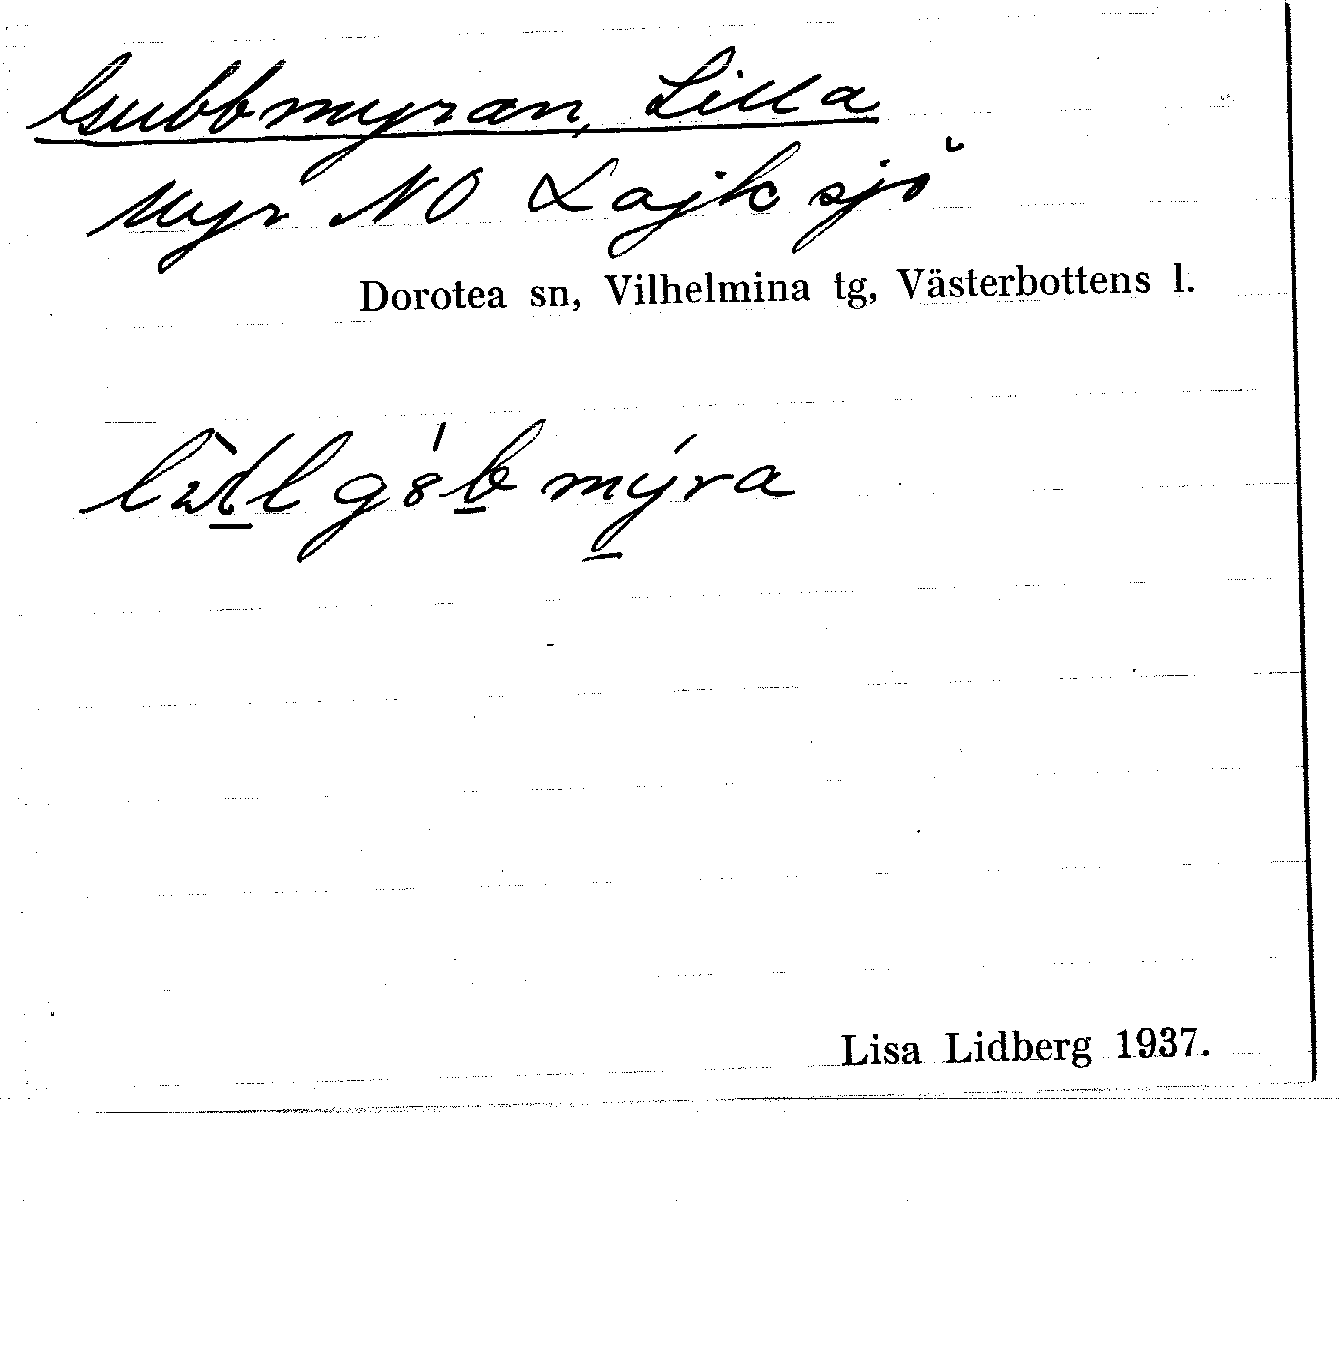 Gubbmyran, Lilla
Myr NO Lajksjö
Dorotea sn, Vilhelmina tg, Västerbottens l.
Lisa Lidberg 1937.